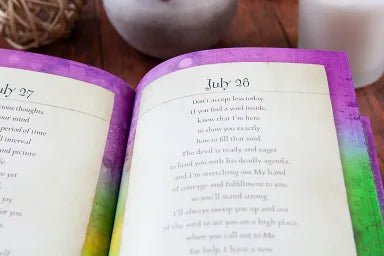 July 27
ous thoughts
ur mind
period of time
l interval
nd picture
fe.
re yet
d
joy
or you.
self
July 28
Don't accept less today
if you feel a void inside,
know that I'm here
to show you exactly
how to fill that void.
The devil is ready and eager
to bind you with his deadly agenda,
and I'm stretching out My hand
of courage and fulfillment to you
so you'll stand strong.
I'll always swoop you up and out
of the void to set you on a high place,
when you call out to Me
for help. I have a new